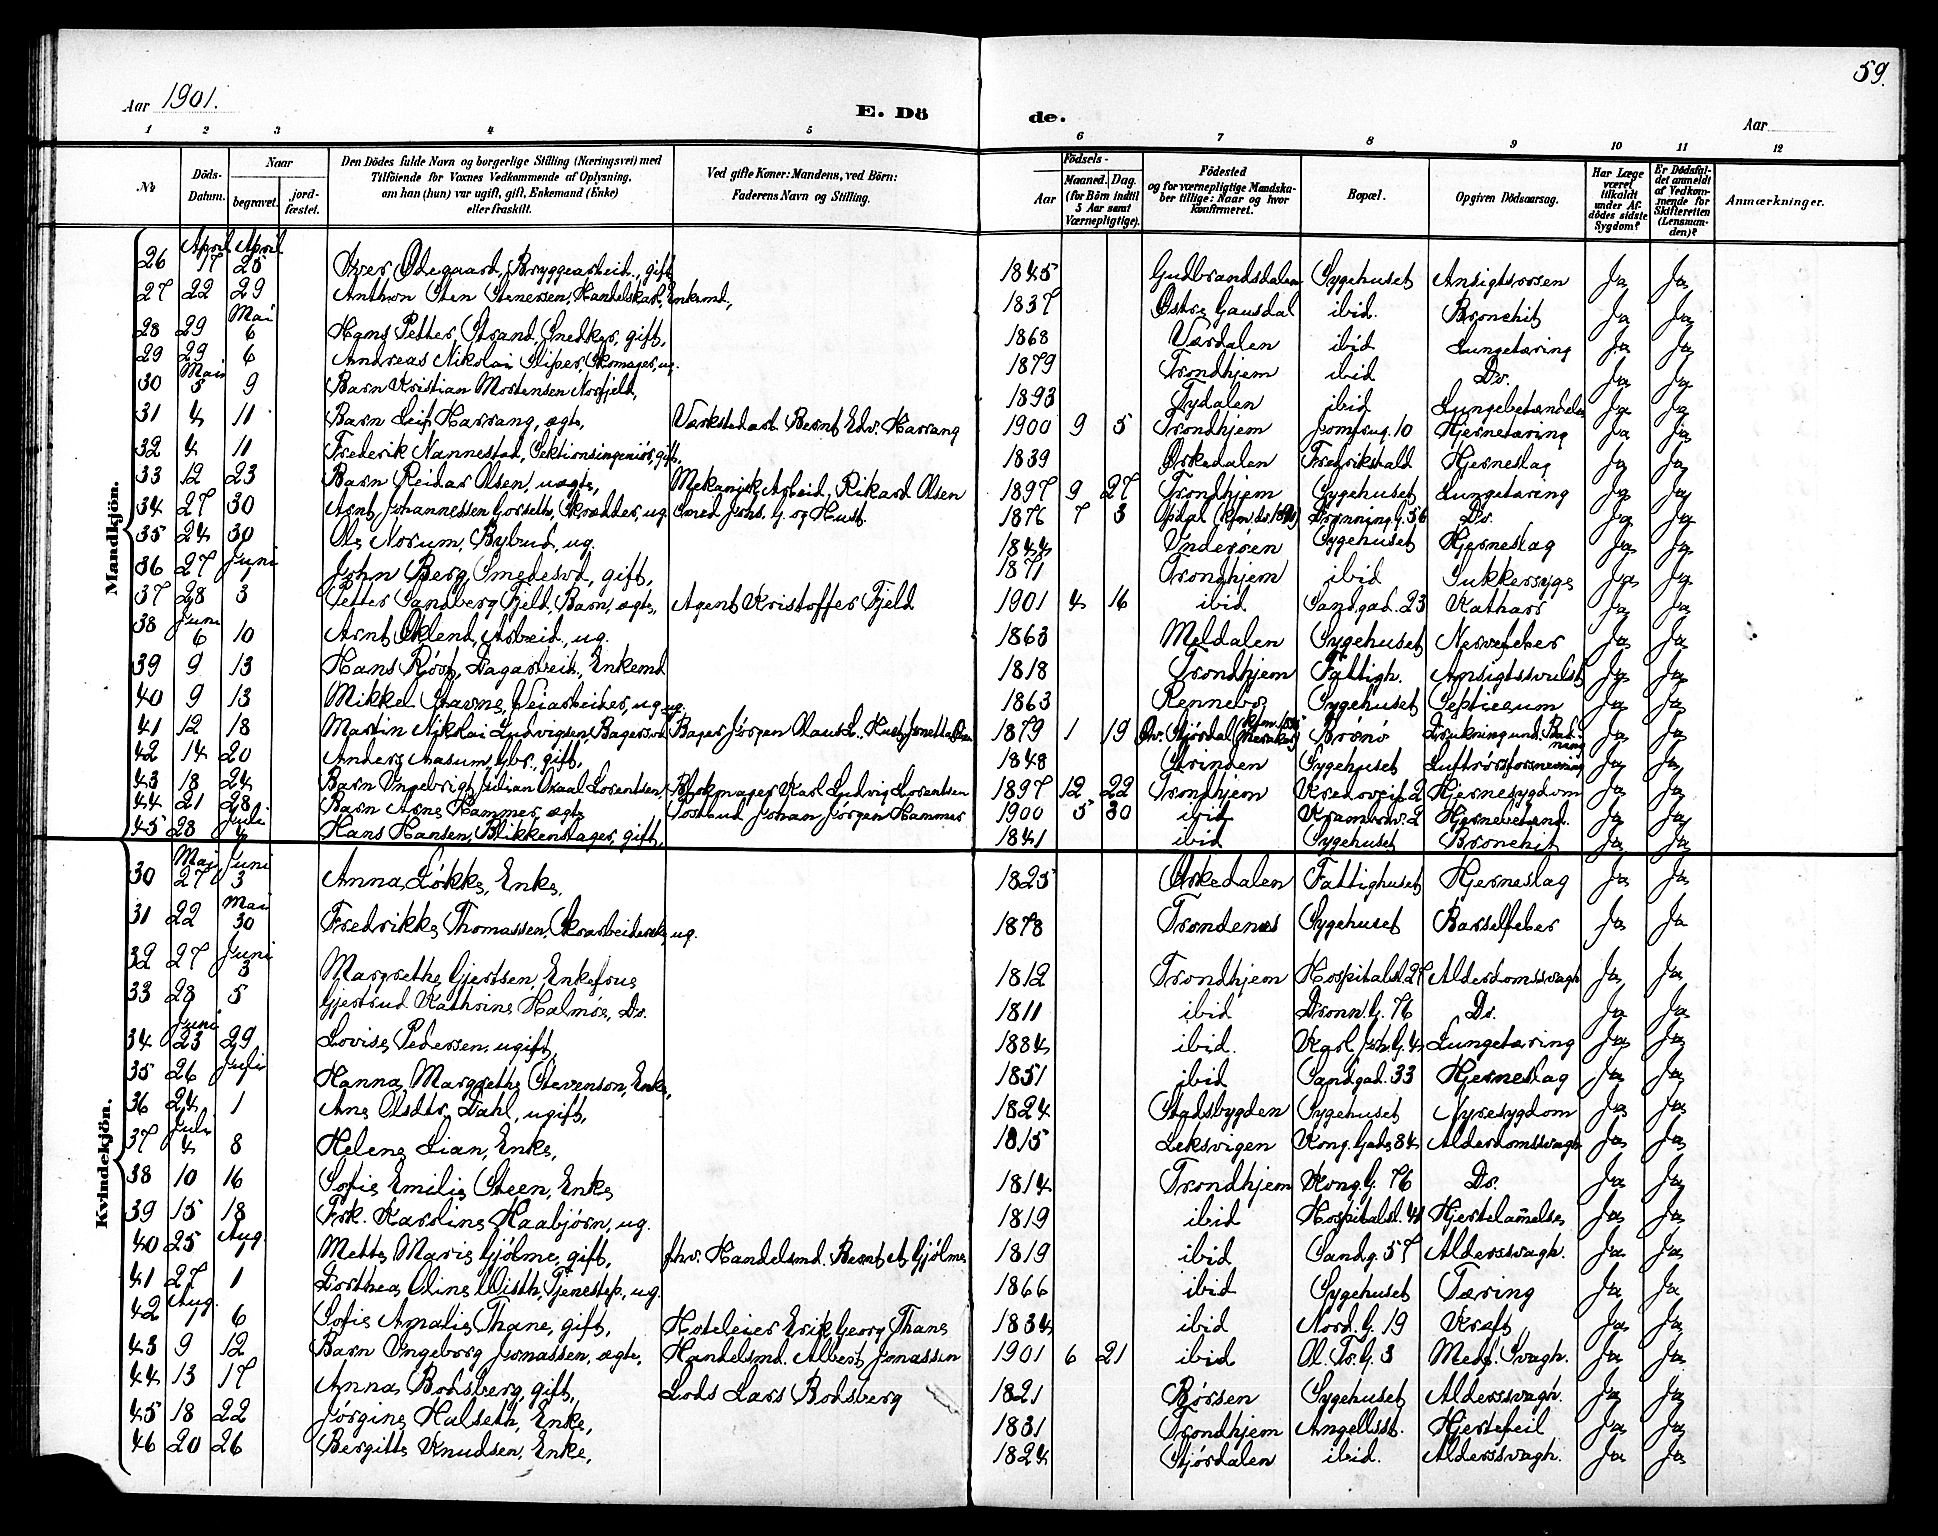 59.
Aar 1901.
E. Dö
de.
Aar
1 2 3 4 5 6 7 8 9 10 11 12
No
Döds-Datum.
Naar
begravet.
jord-fæstet.
Den Dödes fulde Navn og borgerlige Stilling (Næringsvei) med
Tilföiende for Voxnes Vedkommende af Oplysning,
om han (hun) var ugift, gift, Enkemand (Enke)
eller fraskilt.
Ved gifte Koner: Mandens, ved Börn:
Faderens Navn og Stilling.
Födsels-
Aar
Maaned. Dag.
(for Börn indtil 5 Aar samt Værnepligtige).
Födested
og for værnepligtige Mandska-
ber tillige: Naar og hvor
konfirmeret.
Bopæl.
Opgiven Dödsaarsag.
Har Læge været tilkaldt under Afdödes sidste Sygdom?
Er Dödsfaldet anmeldt af Vedkommende for Skifteretten (Lensmanden)?
Anmærkninger.
Mandkjön.
April April
26 17 25 Iver Ødegaard, Bryggearbeid., gift 1845 Gudbrandsdalen Sygehuset Ansigtsrosen Ja Ja
27 22 29 Anthon Sten Stenersen, Handelskarl, Enkemd, 1837 Østre Gausdal ibid. Bronchit Ja Ja
Mai
28 29 6 Hans Petter Strand, Snedker, gift, 1868 Værdalen ibid Lungetæring Ja Ja
29 29 6 Andreas Nikolai Sliper, Skomager, ug. 1879 Trondhjem ibid Do. Ja Ja
Mai
30 3 9 Barn Kristian Mortensen Norfjeld, 1893 Tydalen ibid Lungebetændelse Ja Ja
31 4 11 Barn Leif Harrang, ægte, Værkstedarb. Bernt Edv. Harrang 1900 9 5 Trondhjem Jomfrug. 10 Hjernetæring Ja Ja
32 4 11 Frederik Nannestad, Sektionsingeniör, gift, 1839 Orkedalen Fredrikshald Hjerneslag Ja Ja
33 12 23 Barn Reidar Olsen, uægte, Mekanisk Arbeid. Rikard Olsen 1897 9 27 Trondhjem Sygehuset Lungetæring Ja Ja
34 27 30 Arnt Johannessen Gorseth, Skrædder, ug. Smed Johs. G. og Hust. 1876 7 3 Opdal Dronning. G. 56 Do. Ja Ja
35 24 30 Ole Norum, Bybud, ug. 1844 Inderøen Sygehuset Hjerneslag Ja Ja
36 27 Juni 1 John Berg, Smedesvd., gift, 1871 Trondhjem ibid Sukkersyge Ja Ja
37 28 3 Petter Sandberg Fjeld, Barn, ægte, Agent Kristoffer Fjeld 1901 4 16 ibid Sandgad. 23 Katharr Ja Ja
Juni
38 6 10 Arnt Eklend, Arbeid., ug. 1863 Meldalen Sygehuset Nervefeber Ja Ja
39 9 13 Hans Røst, Dagarbeid., Enkemd 1818 Trondhjem Fattigh. Ansigtssvulst Ja Ja
40 9 13 Mikkel Stavne, Veiarbeider, ug. 1863 Rennebo Sygehuset Septicæum Ja Ja
41 12 18 Martin Nikolai Ludvigsen, Bagersvd Bager Jörgen Olaus L. Hust. 1879 1 19 Stjørdal Brønø Drukning und. Badning Ja Ja
42 14 20 Anders Aasum, Gbr., gift, 1848 Strinden Sygehuset Luftrörsforsnevring Ja Ja
43 18 24 Barn Ingebrigt Julian Oxaal Lorentsen, Blokmager Karl Ludvig Lorentsen 1897 12 22 Trondhjem 2 Hjernesygdom Ja Ja
44 21 28 Barn Arne Hammer, ægte Postbud Johan Jörgen Hammer 1900 5 30 ibid 2 Hjernebetænd. Ja Ja
Juli
45 28 4 Hans Hansen, Blikkenslager, gift, 1841 ibid Sygehuset Bronchit Ja Ja
Kvindekjön.
Mai Juni
30 27 3 Anna Løkke, Enke, 1825 Orkedalen Fattighuset Hjerneslag Ja Ja
Mai
31 22 30 Fredrikke Thomassen, Skoarbeiderske, ug. 1878 Trondenæs Sygehuset Barselfeber Ja Ja
Juni
32 27 3 Margrethe Gjertsen, Enkefrue 1812 Trondhjem Hospitalsl. 27 Alderdomssvagh Ja Ja
33 28 5 Gjertrud Kathrine Halmøe, Do. 1811 ibid Dronn. G. 76 Do. Ja Ja
Juni
34 23 29 Lovise Pedersen, ugift, 1884 ibid. Karl Joh. G. 4 Lungetæring Ja Ja
Juli
35 26 Hanna Margrethe Stevenson, Enke, 1851 ibid Sandgad. 33 Hjerneslag Ja Ja
36 24 1 Ane Olsdtr. Dahl, ugift, 1824 Stadsbygden Sygehuset Nyresygdom Ja Ja
Juli
37 4 8 Helene Lian, Enke, 1815 Leksvigen Kong. Gade 34 Alderdomssvagh Ja Ja
38 10 16 Sofie Emilie Steen, Enke 1814 Trondhjem Kong. G. 76 Do. Ja Ja
39 15 18 Frk. Karoline Haabjørn, ug. 1819 ibid Hospitalsl. 41 Hjertelam̄else Ja Ja
Aug.
40 25 Mette Marie Gjølme, gift, fhv. Handelsmd. Bernt A. Gjølme 1819 ibid Sandg. 57 Alderssvagh. Ja Ja
41 27 1 Dorthea Oline Wisth, Tjenestep., ug. 1866 ibid Sygehuset Tæring Ja Ja
Aug.
42 1 6 Sofie Amalie Thane, gift, Hoteleier Erik Georg Thane 1834 ibid Nord. G. 19 Kræft Ja Ja
43 9 12 Barn Ingeborg Jonassen, ægte, Handelsmd. Albert Jonassen 1901 6 21 ibid Ol. Tr. G. 3 Medf. Svagh. Ja Ja
44 13 17 Anna Bodsberg, gift, Lods Lars Bodsberg 1821 Børsen Sygehuset Alderssvagh. Ja Ja
45 18 22 Jørgine Halseth, Enke, 1831 Trondhjem Angellsst. Hjertefeil Ja Ja
46 20 26 Bergitte Knudsen, Enke, 1824 Stjørdalen ibid. Alderssvagh. Ja Ja